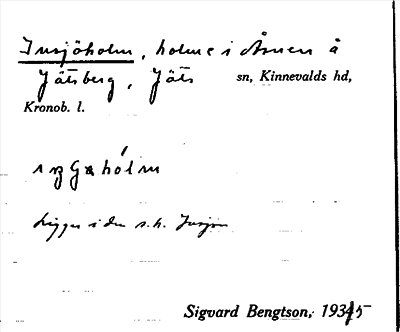 Insjöholm, holme i Åsnen å
Jätsberg, Jäts sn, Kinnevalds hd,
Kronob. l.
Ligger i den s.k. Insjön
Sigvard Bengtson, 1935